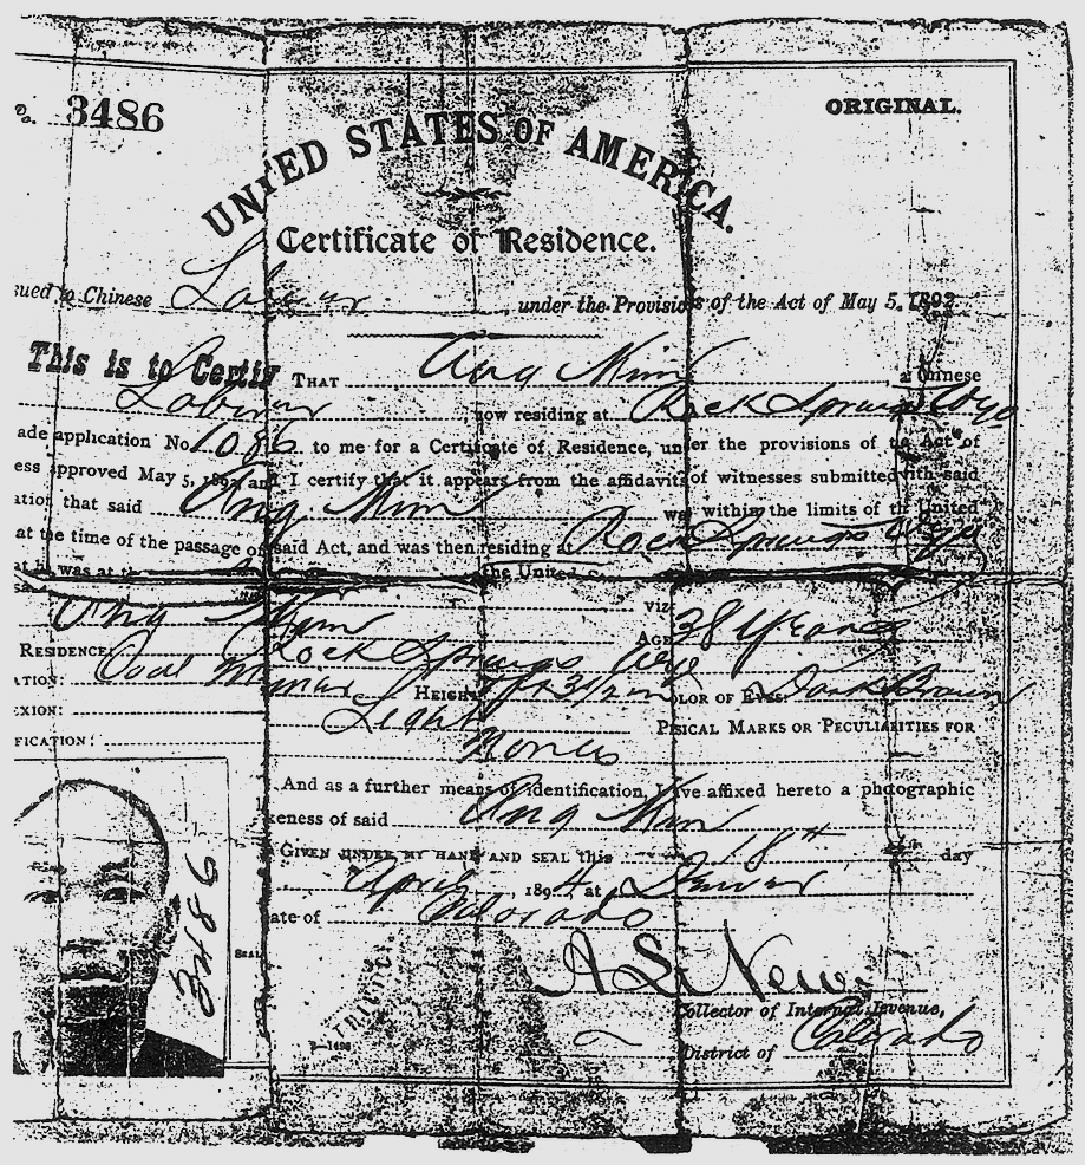 No. 3486
ORIGINAL.
UNITED STATES OF AMERICA.
Certificate of Residence.
sued to Chinese Laborer, under the Provisions of the Act of May 5, 1892.
This is to Certify THAT Ang Mim a Chinese
Laborer now residing at Rock Springs Wyo
ade application No. 1086 to me for a Certificate of Residence, under the provisions of the Act of
ess approved May 5, 1892, and I certify that it appears from the affidavits of witnesses submitted with said
ation that said Ang Mim was within the limits of the United
at the time of the passage of said Act, and was then residing at Rock Springs Wyo
at he was at the United
Ang Mim viz
AGE 38 Years
RESIDENCE: Rock Springs Wyo
ATION: Coal Miner HEIGHT 5 ft 3 1/2 in COLOR OF EYES: Dark Brown
EXION: Light PHYSICAL MARKS OR PECULIARITIES FOR
FICATION: None
And as a further means of identification, I have affixed hereto a photographic
keness of said Ang Mim
GIVEN UNDER MY HAND AND SEAL this 18th day
April, 1894, at Denver
ate of Colorado
3486
SEAL
A S New
Collector of Internal Revenue,
District of Colorado